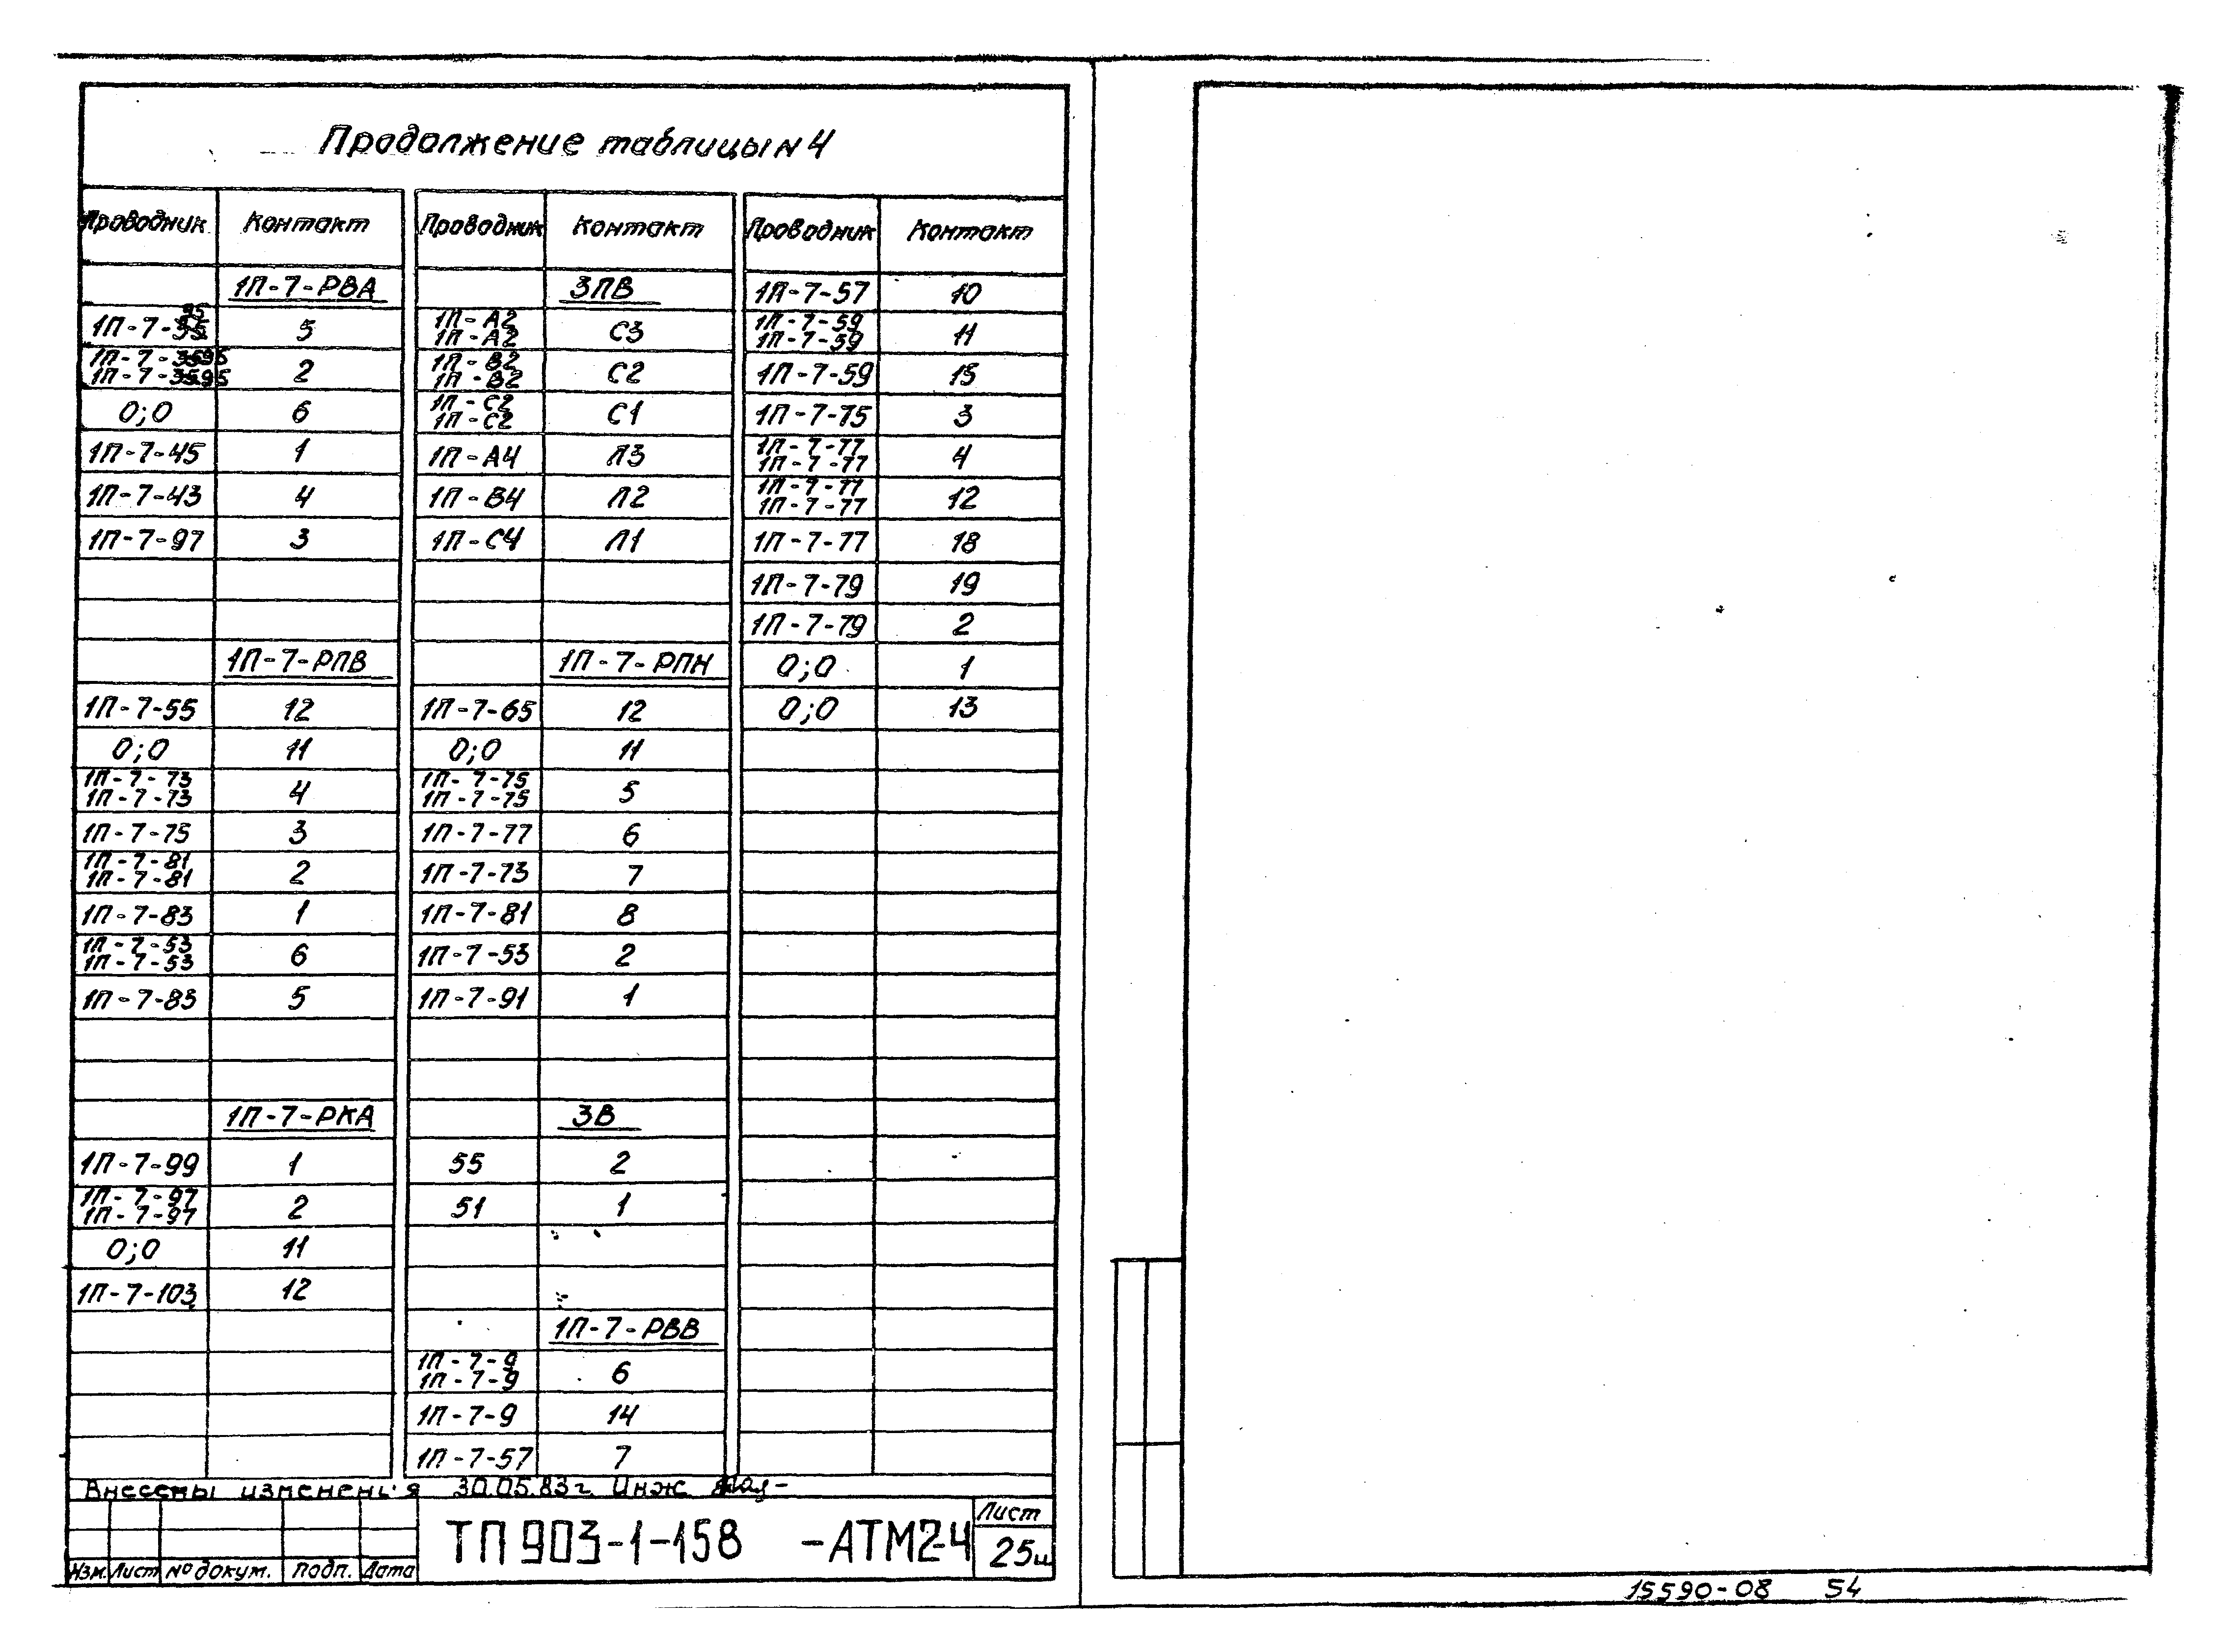 Продолжение таблицы N 4
Проводник Контакт Проводник Контакт Проводник Контакт
1П-7-РВА
1П-7-95 5
1П-7-95
1П-7-95 2
0;0 6
1П-7-45 1
1П-7-43 4
1П-7-97 3
1П-7-РПВ
1П-7-55 12
0;0 11
1П-7-73
1П-7-73 4
1П-7-75 3
1П-7-81
1П-7-81 2
1П-7-83 1
1П-7-53
1П-7-53 6
1П-7-85 5
1П-7-РКА
1П-7-99 1
1П-7-97
1П-7-97 2
0;0 11
1П-7-103 12
3ПВ
1П-А2
1П-А2 С3
1П-В2
1П-В2 С2
1П-С2
1П-С2 С1
1П-А4 Л3
1П-В4 Л2
1П-С4 Л1
1П-7-РПН
1П-7-65 12
0;0 11
1П-7-75
1П-7-75 5
1П-7-77 6
1П-7-73 7
1П-7-81 8
1П-7-53 2
1П-7-91 1
3В
55 2
51 1
1П-7-РВВ
1П-7-9
1П-7-9 6
1П-7-9 14
1П-7-57 7
1П-7-57 10
1П-7-59
1П-7-59 11
1П-7-59 15
1П-7-75 3
1П-7-77
1П-7-77 4
1П-7-77
1П-7-77 12
1П-7-77 18
1П-7-79 19
1П-7-79 2
0;0 1
0;0 13
Внесены изменения 30.05.83г. Инж.
Изм. Лист № докум. Подп. Дата
ТП 903-1-158 -АТМ2-4
Лист
25ш
15590-08 54